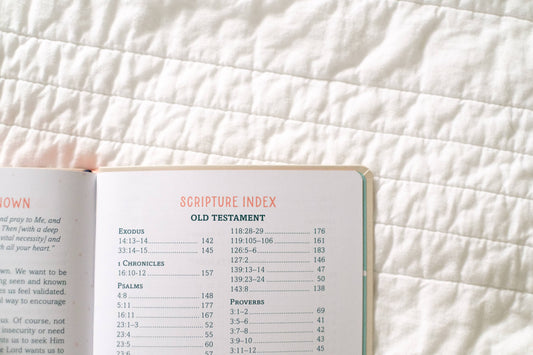 NOWN
nd pray to Me, and
Then [with a deep
vital necessity] and
th all your heart."
own. We want to be
ng seen and known
es us feel validated.
l way to encourage
us. Of course, not
insecurity or need
nts us to seek Him
e Lord wants us to
SCRIPTURE INDEX
OLD TESTAMENT
EXODUS
14:13–14 142
33:14–15 145
1 CHRONICLES
16:10–12 157
PSALMS
4:8 148
5:11 177
16:11 167
23:1–3 52
23:4 55
23:5 60
23:6 57
118:28–29 176
119:105–106 161
126:5–6 183
127:2 146
139:13–14 47
139:23–24 50
143:8 138
PROVERBS
3:1–2 69
3:5–6 41
3:7–8 42
3:9–10 43
3:11–12 45